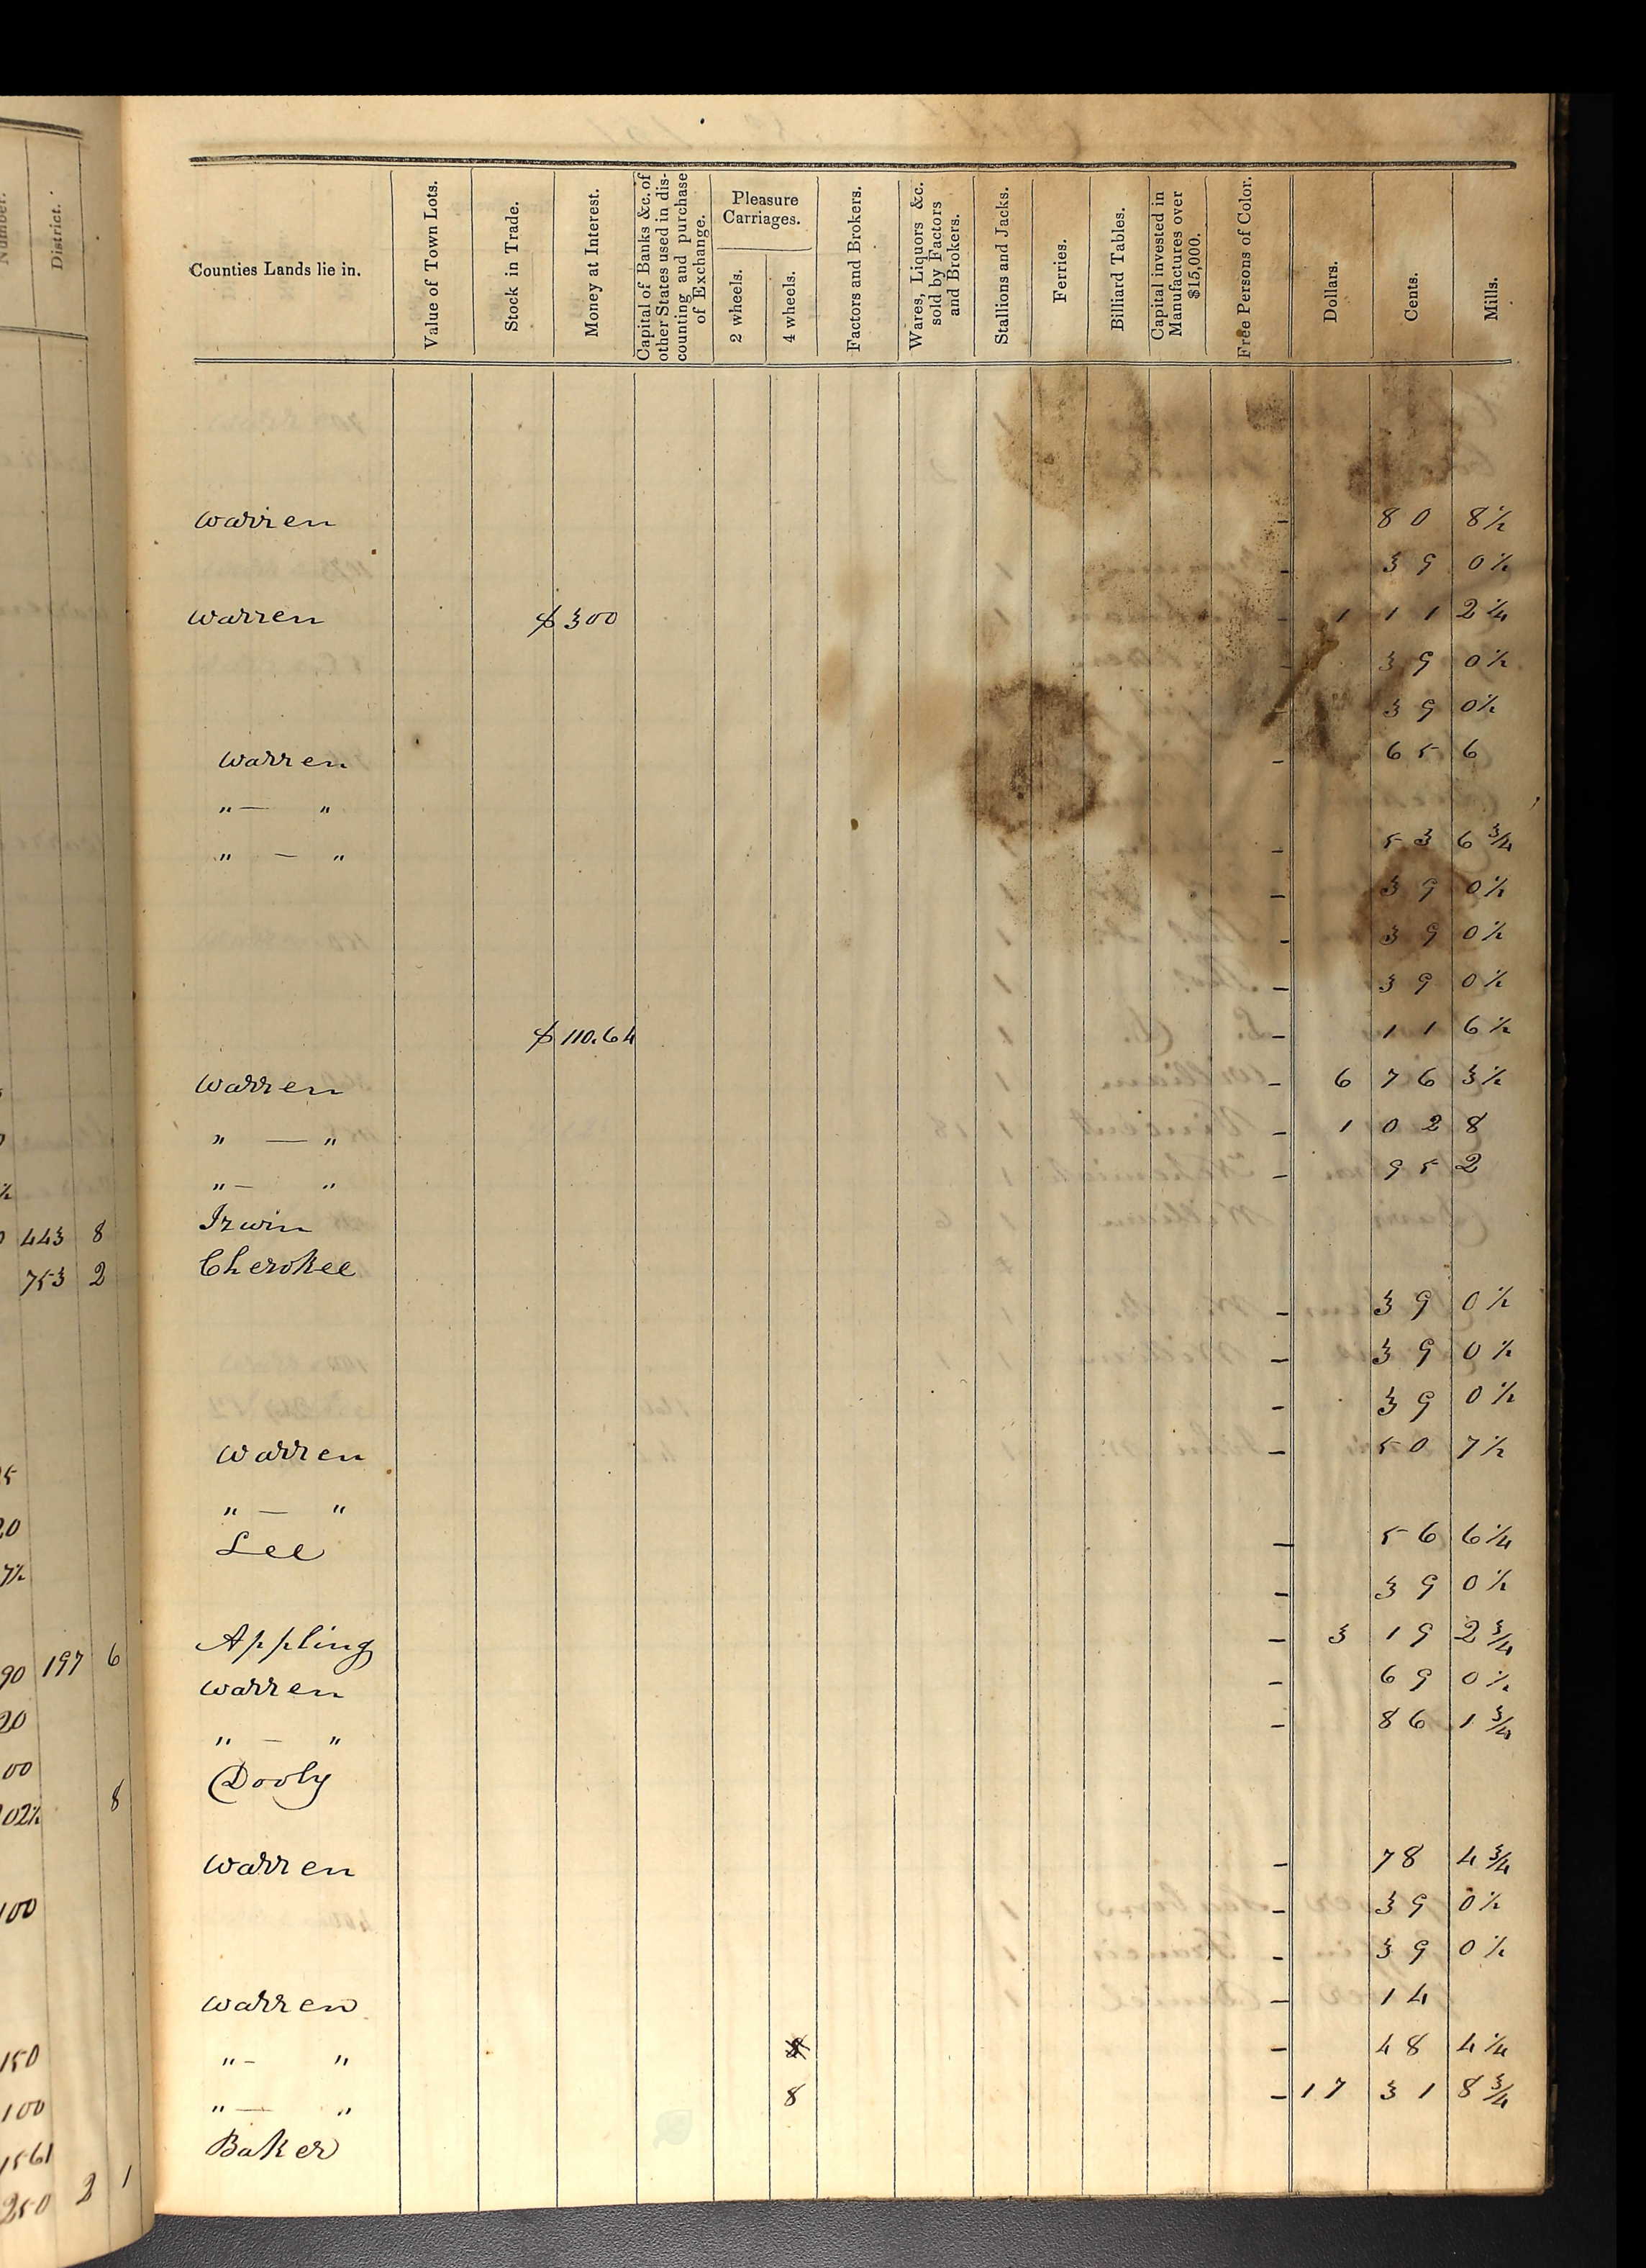 Number. District.
Counties Lands lie in. Value of Town Lots. Stock in Trade. Money at Interest. Capital of Banks &c. of other States used in discounting and purchase of Exchange. Pleasure Carriages. 2 wheels. 4 wheels. Factors and Brokers. Wares, Liquors &c. sold by Factors and Brokers. Stallions and Jacks. Ferries. Billiard Tables. Capital invested in Manufactures over $15,000. Free Persons of Color. Dollars. Cents. Mills.
Warren - 80 8½
- 39 0½
Warren $300 - 1 11 2¼
- 39 0½
39 0½
Warren - 65 6
" — "
" — " - 53 6¾
- 39 0½
- 39 0½
- 39 0½
$110.64 - 11 6½
Warren - 6 76 3½
" — " - 1 02 8
" — " - 95 2
443 8 Irwin
753 2 Cherokee
- 39 0½
- 39 0½
- 39 0½
Warren - 50 7½
" — "
Lee - 56 6¼
- 39 0½
90 197 6 Appling - 3 19 2¾
Warren - 69 0½
20 " — " - 86 1¾
00 Dooly
02½ 8
Warren - 78 4¾
100 - 39 0½
- 39 0½
Warren - 14
150 " - " - 48 4¼
100 " — " 8 - 17 31 8¾
1561 Baker
250 2 1